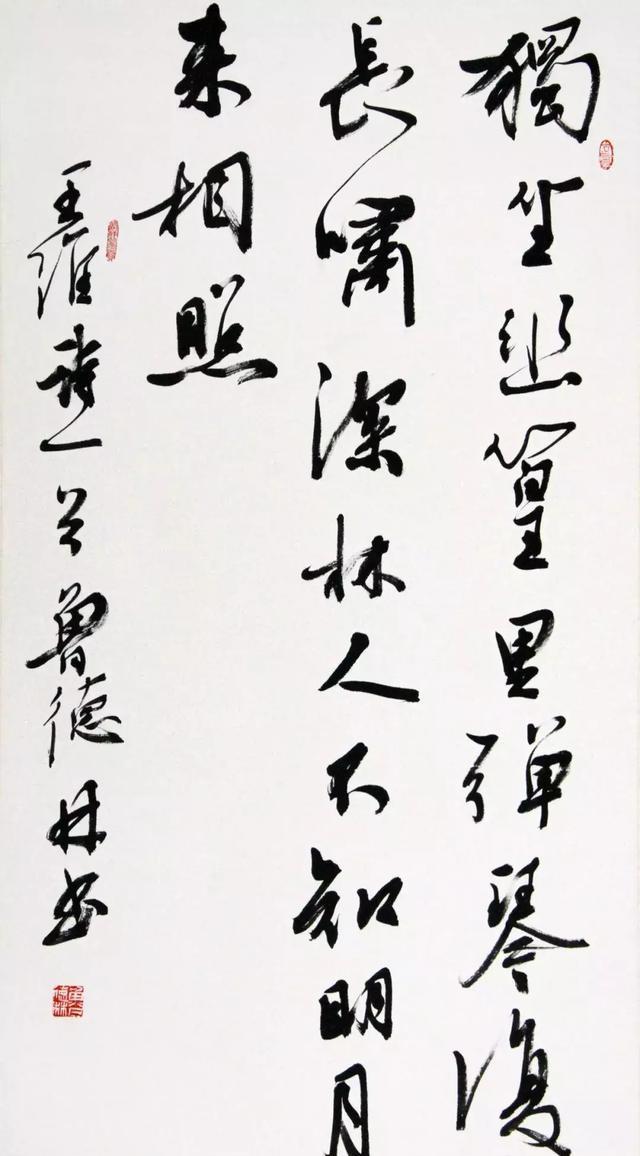 獨坐幽篁里彈琴復
長嘯深林人不知明月
来相照
王維詩一首魯德林书